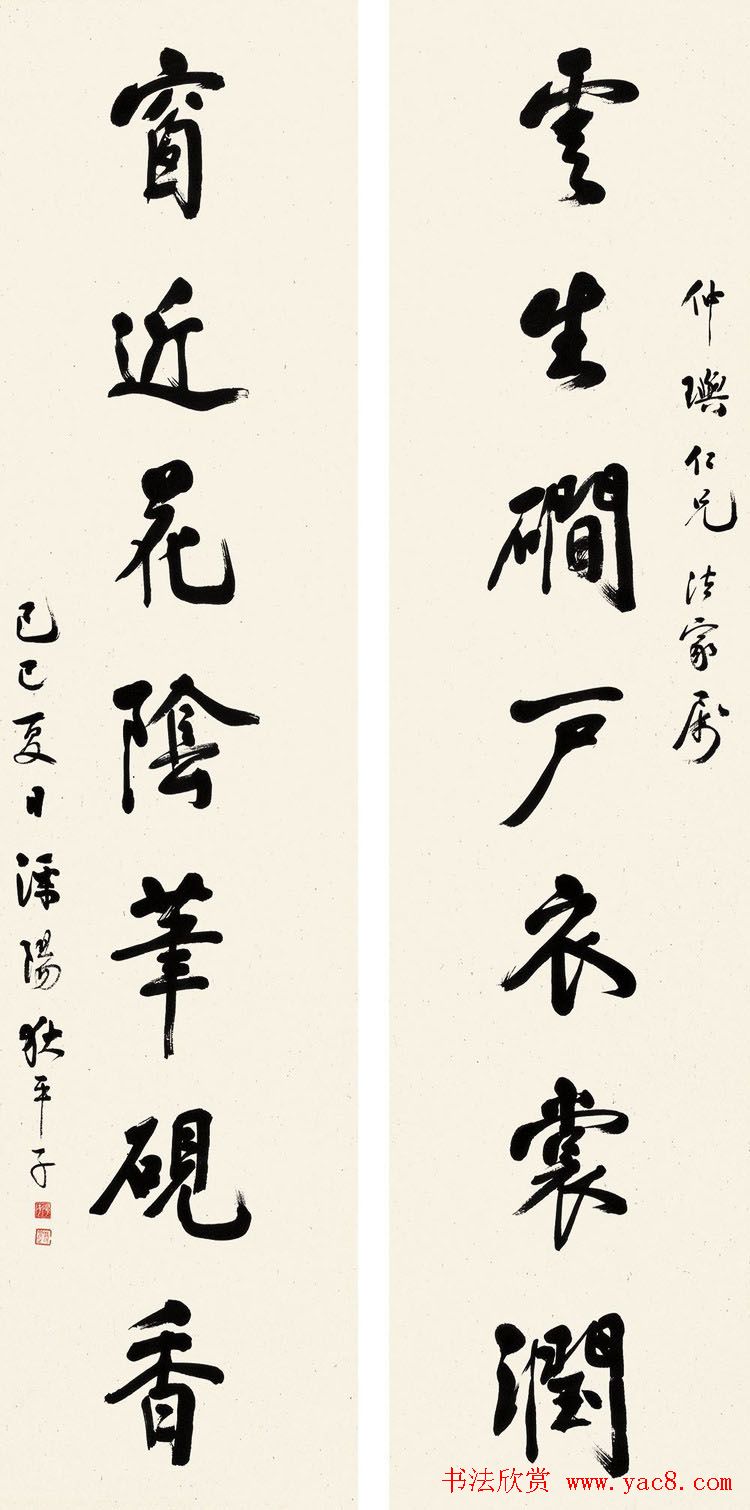 仲璵仁兄法家属
雲生磵戶衣裳潤
窗近花陰筆硯香
己巳夏日溧陽狄平子
书法欣赏 www.yac8.com